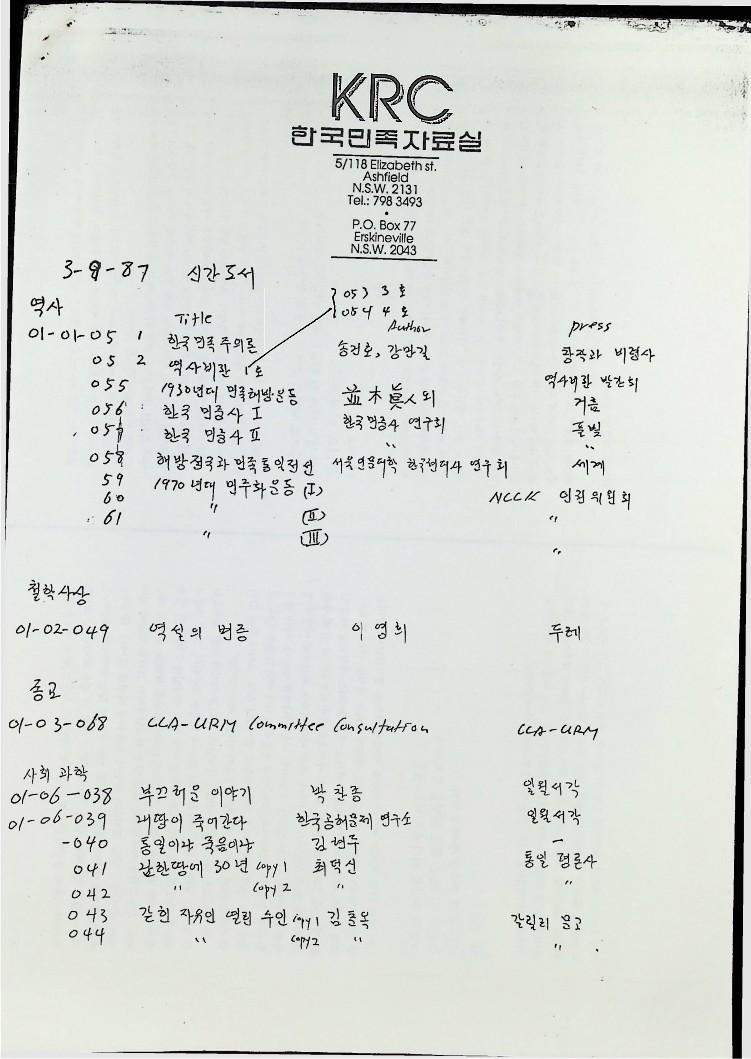 KRC
한국민족자료실
5/118 Elizabeth st.
Ashfield
N.S.W. 2131
Tel.: 798 3493
•
P.O. Box 77
Erskineville
N.S.W. 2043
3-9-87 신간도서
053 3호
054 4호
역사 Title Author press
01-01-05 1 한국민족주의론 송건호, 강만길 창작과 비평사
05 2 역사비판 1호 역사비판
055 1930년대 민족해방운동 並木眞人 외 거름
056 한국 민중사 I 한국민중사 연구회 풀빛
057 한국 민중사 II 〃 〃
058 해방정국과 민족통일전선 서울인문대학 한국현대사 연구회 세계
59 1970년대 민주화운동 (I) NCCK 인권위원회
60 〃 (II) 〃
61 〃 (III) 〃
철학사상
01-02-049 역설의 변증 이영희 두레
종교
01-03-068 CCA-URM Committee Consultation CCA-URM
사회 과학
01-06-038 부끄러운 이야기 박찬종 일월서각
01-06-039 내땅이 죽어간다 한국공해문제 연구소 일월서각
-040 통일이냐 죽음이냐 김 –
041 남한땅에 30년 copy 1 최덕신 통일 평론사
042 〃 copy 2 〃 〃
043 갇힌 자유인 열린 수인 copy 1 김 갈릴리 문고
044 〃 copy 2 〃 〃